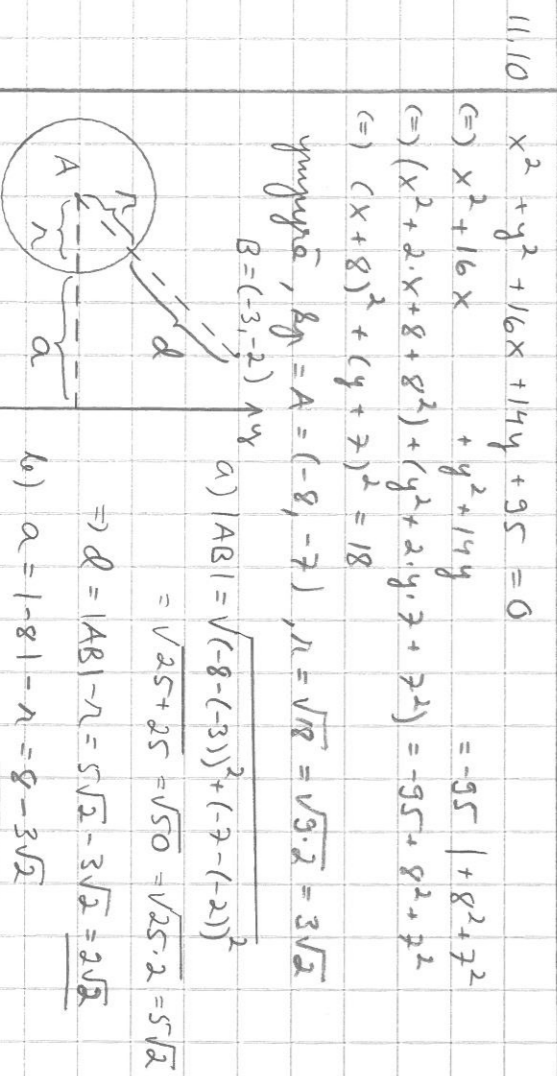 11.10 x² + y² + 16x + 14y + 95 = 0
(=) x² + 16x + y² + 14y = -95 | + 8² + 7²
(=) (x² + 2·x + 8 + 8²) + (y² + 2·y·7 + 7²) = -95 + 8² + 7²
(=) (x + 8)² + (y + 7)² = 18
= A = (-8, -7), r = √18 = √9·2 = 3√2
B = (-3, -2)
y
A
r
r
d
a
a) |AB| = √(-8-(-3))² + (-7-(-2))²
= √25 + 25 = √50 = √25·2 = 5√2
=) d = |AB| - r = 5√2 - 3√2 = 2√2
b) a = |-8| - r = 8 - 3√2